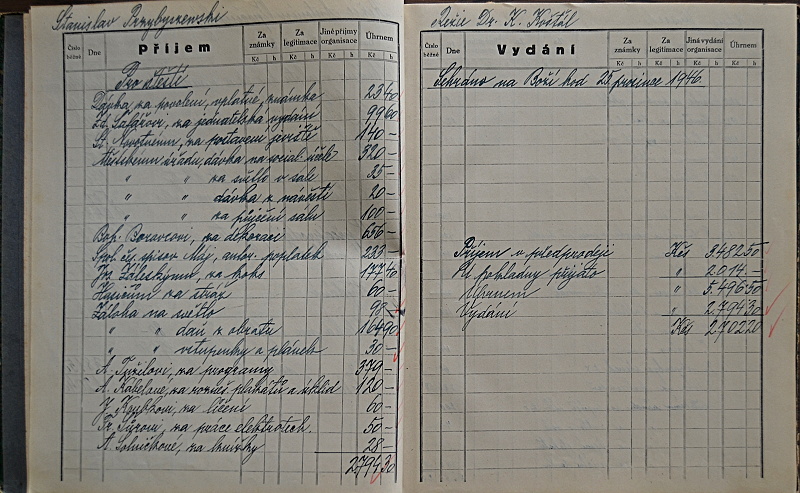 Stanislav Przybyszewski
Číslo běžné Dne Příjem Za známky Za legitimace Jiné příjmy organisace Úhrnem
Kč h Kč h Kč h Kč h
Pro štěstí
Dávka za povolení, výlatné, známka 23 40
Zd. Šafářovi, za jednatelská vydání 99 60
St. Novotnému, za postavení jeviště 140 –
Městskému úřadu, dávka na social. účele 320 –
" " za světlo v sále 25 –
" " dávka z návěstí 20 –
" " za půjčení sálu 100 –
Boh. Boravcovi, za dekoraci 656 –
Spol. čs. spisov. Máj, autor. poplatek 233 –
Jos. Záleským, za koks 177 40
Hasičům za stráž 60 –
Záloha na světlo 98
" " daň z obratu 164 90
" " vstupenky a plánek 30 –
A. Tužilovi, za programy 379 –
A. Kábelové, za roznáš. plakátů a úklid 120 –
J. za líčení 60 –
Fr. za práce elektrotech. 50 –
A. Solničkové, za knížky 28 –
2794 30
Režie Dr. K. Košťál
Číslo běžné Dne Vydání Za známky Za legitimace Jiná vydání organisace Úhrnem
Kč h Kč h Kč h Kč h
Sehráno na Boží hod 25 prosince 1946
Příjem v předprodeji Kčs 3.482 50
U pokladny přijato " 2.014 –
Úhrnem " 5.496 50
Vydání " 2.794 30
Kčs 2.702 20